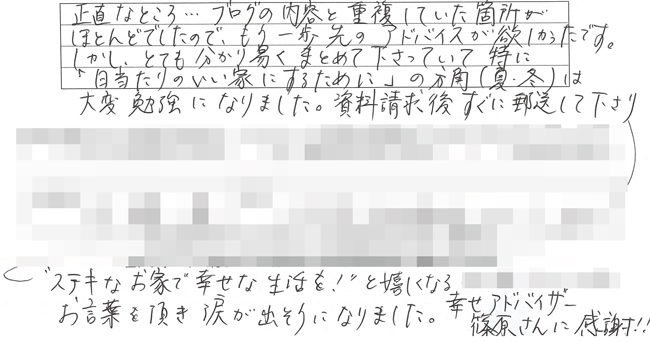 正直なところ… ブログの内容と重複していた箇所が
ほとんどでしたので、もう一歩先のアドバイスが欲しかったです。
しかし、とても分かり易くまとめて下さっていて特に
「日当たりのいい家にするために」の方角(夏・冬)は
大変勉強になりました。資料請求後すぐに郵送して下さり
"ステキなお家で幸せな生活を!"と嬉しくなる
お言葉を頂き涙が出そうになりました。幸せアドバイザー
篠原さんに感謝!!